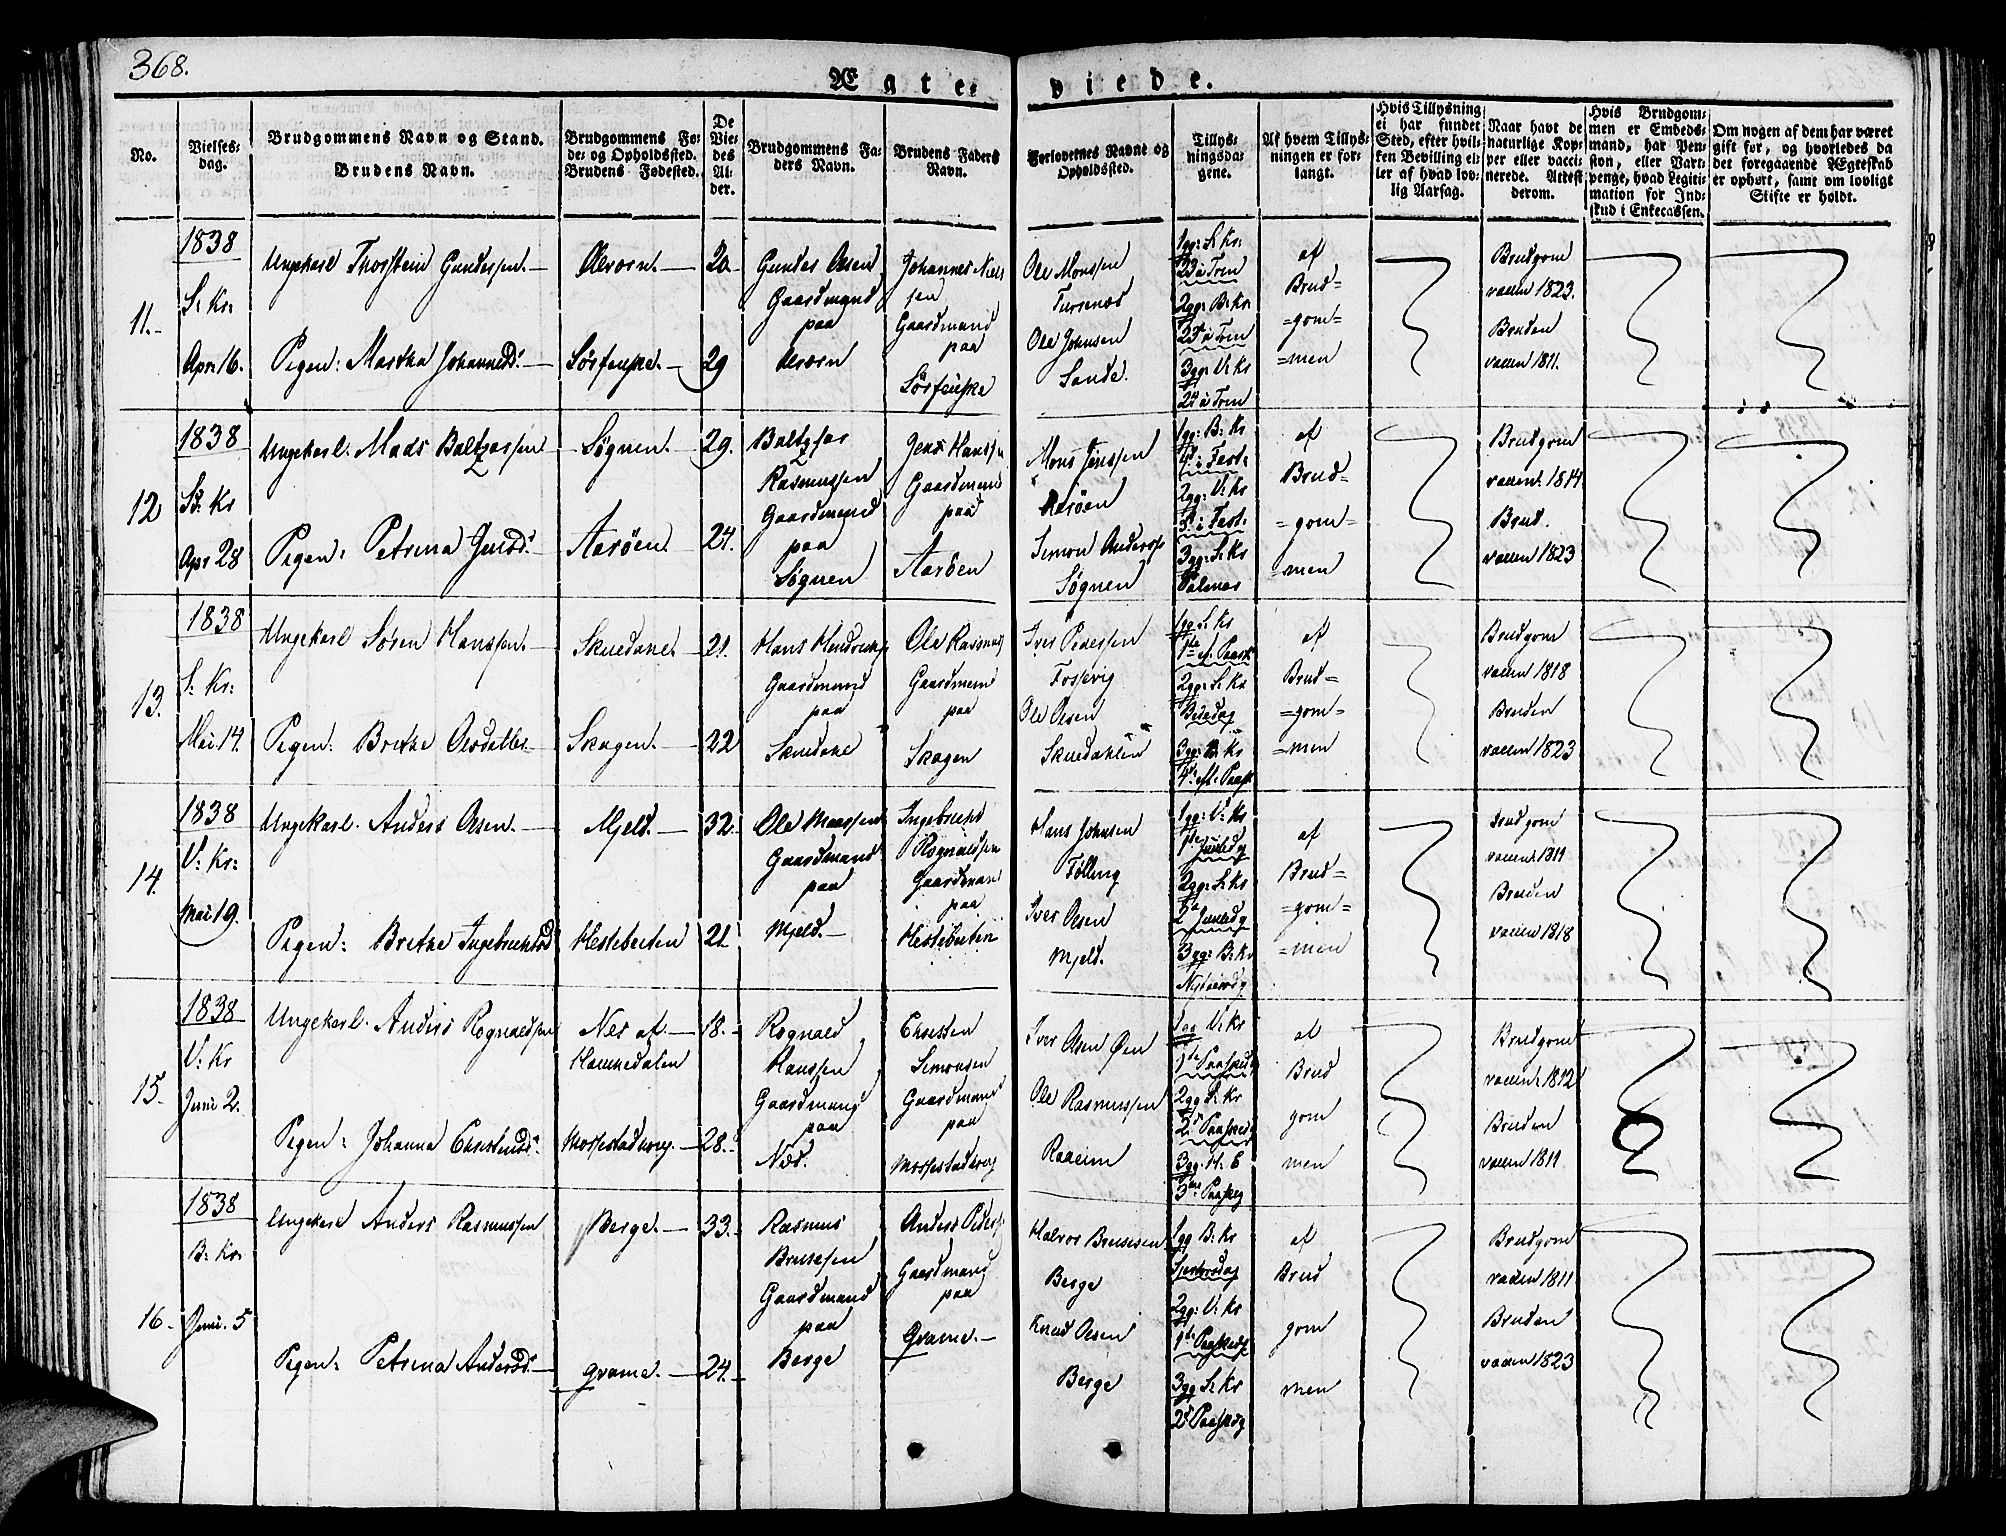 368.
Ægte-
viede.
No.
Vielses-
dag.
Brudgommens Navn og Stand.
Brudens Navn.
Brudgommens Fø-
de- og Opholdssted.
Brudens Fødested.
De
Vie-
des
Al-
der.
Brudgommens Fa-
ders Navn.
Brudens Faders
Navn.
Forlovernes Navne og
Opholdssted.
Tillys-
ningsda-
gene.
Af hvem Tillys-
ningen er for-
langt.
Hvis Tillysning
ei har fundet
Sted, efter hvil-
ken Bevilling el-
ler af hvad lov-
lig Aarsag.
Naar havt de
naturlige Kop-
per eller vacci-
nerede. Attest
derom.
Hvis Brudgom-
men er Embeds-
mand, har Pen-
sion, eller Vart-
penge, hvad Legiti-
mation for Ind-
skud i Enkecassen.
Om nogen af dem har været
gift før, og hvorledes da
det foregaaende Ægteskab
er ophørt, samt om lovligt
Skifte er holdt.
11.
1838
S: Kr:
Apr: 16.
Ungekarl Thorstein Gundersen.
Pigen: Martha Johannesd:
20
29
Gunder Olsen
Gaardmand
paa
Johannes Niel-
sen
Gaardmand
paa
Ole Monssen
Ole Johnsen
Sande.
1gg: S: Kr:
2gg: B: Kr.
3gg: V: Kr
af
Brud=
=gom=
=men
Brudgom
vaccin 1823.
Bruden
vaccin 1811.
12
1838
B: Kr
Apr 28
Ungekarl. Mads Baltzersen
Pigen: Petrina Jensd:
Søgnen.
Aarøen.
29.
24.
Baltzer
Rasmussen
Gaardmand
paa
Søgnen
Jens Hanss
Gaardmand
paa
Aarøen
Mons Jenssen
Aarøen
Simon Anderss
Søgnen
1gg: B: Kr
4d: i Fast:
2gg: V: Kr
5: i Fast.
3gg: S: Kr
Palmes
af
Brud=
=gom=
=men
Brudgom
vaccin: 1814
Brud.
vaccin 1823
13.
1838
S: Kr:
Mai 14.
Ungekarl Søren Hanssen.
Pigen: Brethe Olsdatter
Skuedane.
Skagen.
21.
22
Hans Hendriks
Gaardmand
paa
Skuedahl
Ole Rasmus
Gaardmand
paa
Skagen
Iver Pedersen
Fossevig
Ole Olsen
Skuedahlen
1gg S: Kr
2gg: S: Kr
Bededag
3gg: B: Kr
af
Brud=
=gom=
=men
Brudgom
vaccin 1818
Bruden
vaccin 1823
14.
1838
V: Kr:
Mai 19.
Ungekarl. Anders Olsen.
Pigen: Brethe Ingebrechtsd
Mjeld.
Hestebeiten
32.
21.
Ole Monssen
Gaardmand
paa
Mjeld.
Ingebrecht
Rognaldsen
Gaardmand
paa
Hestebeiten
Hans Johnsen
Følling
Iver Olsen
Mjeld.
1gg: V: Kr
1ste Juledg
2gg: S: Kr
2d Juledg
3gg: B: Kr
Nytaarsdg
af
Brud=
=gom=
=men
Brudgom
vaccin: 1811
Bruden
vaccin 1818
15.
1838
V: Kr
Juni 2.
Ungekarl. Anders Rognaldsen
Pigen: Johanna Christensd:
Nes af
Hamnedalen
18.
28.
Rognald
Hanssen
Gaardmand
paa
Nes.
Christen
Simonsen
Gaardmand
paa
Iver Olsen Øen
Ole Rasmussen
Raaeim
1gg V: Kr
1de Paaskedg
2gg S: Kr
2d Paaskedg
af
Brud
gom
men
Brudgom
vaccin: 1812
Bruden
vaccin 1811
16
1838
B: Kr
Juni. 5
Ungekarl Anders Rasmussen
Pigen: Petrina Andersd:
Berge.
Grame.
33.
24.
Rasmus
Brusesen
Gaardmand
paa
Berge
Anders Peders
Gaardmand
paa
Grame.
Halvor Brusesen
Berge
Knud Olsen
Berge
1gg B: Kr
2gg: V: Kr
1ste Paaskedg
3gg S: Kr
2d Paaskdg
af
Brud
gom
men
Brudgom
vaccin 1811
Bruden
vaccin 1823